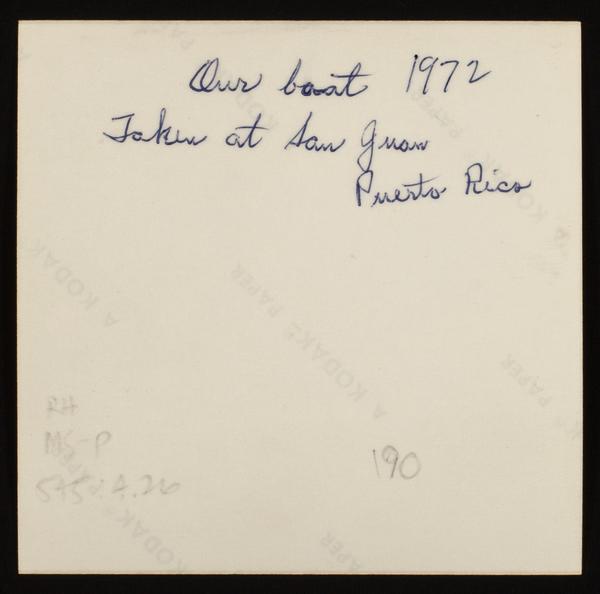 Our boat 1972
Taken at San Guan
Puerto Rico
A KODAK PAPER
A KODAK PAPER
A KODAK PAPER
PAPER
RH
MS-P
545:4.26
190
A KODAK PAPER
PAPER